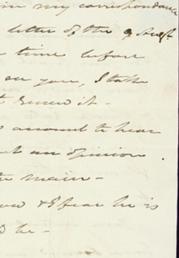 my correspondence
letter of the 9 Augt
time before
on you, I take
to renew it -
amount to hear
an opinion.
the main -
& fear he is
be -